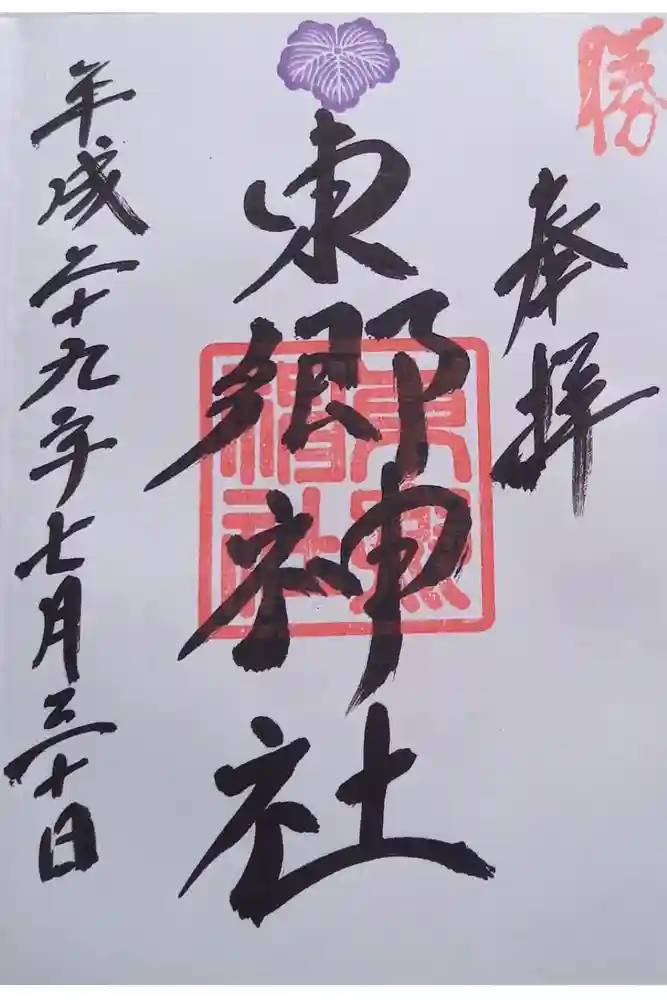 勝
奉拝
東郷神社
東郷
神社
平成二十九年七月三十日